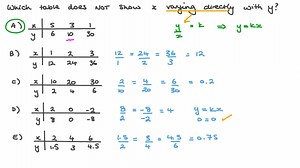 Which table does not show x varying directly with y?
A) x 5 3 1 y/x = k ⇒ y = kx
y 6 10 30
B) x 1 2 3 12/1 = 24/2 = 36/3 = 12
y 12 24 36
C) x 10 20 30 2/10 = 4/20 = 6/30 = 0.2
y 2 4 6
D) x 2 0 -2 8/2 = -8/-2 = 4 y = kx
y 8 0 -8 0 = 0 ✓
E) x 2 4 6 1.5/2 = 3/4 = 4.5/6 = 0.75
y 1.5 3 4.5